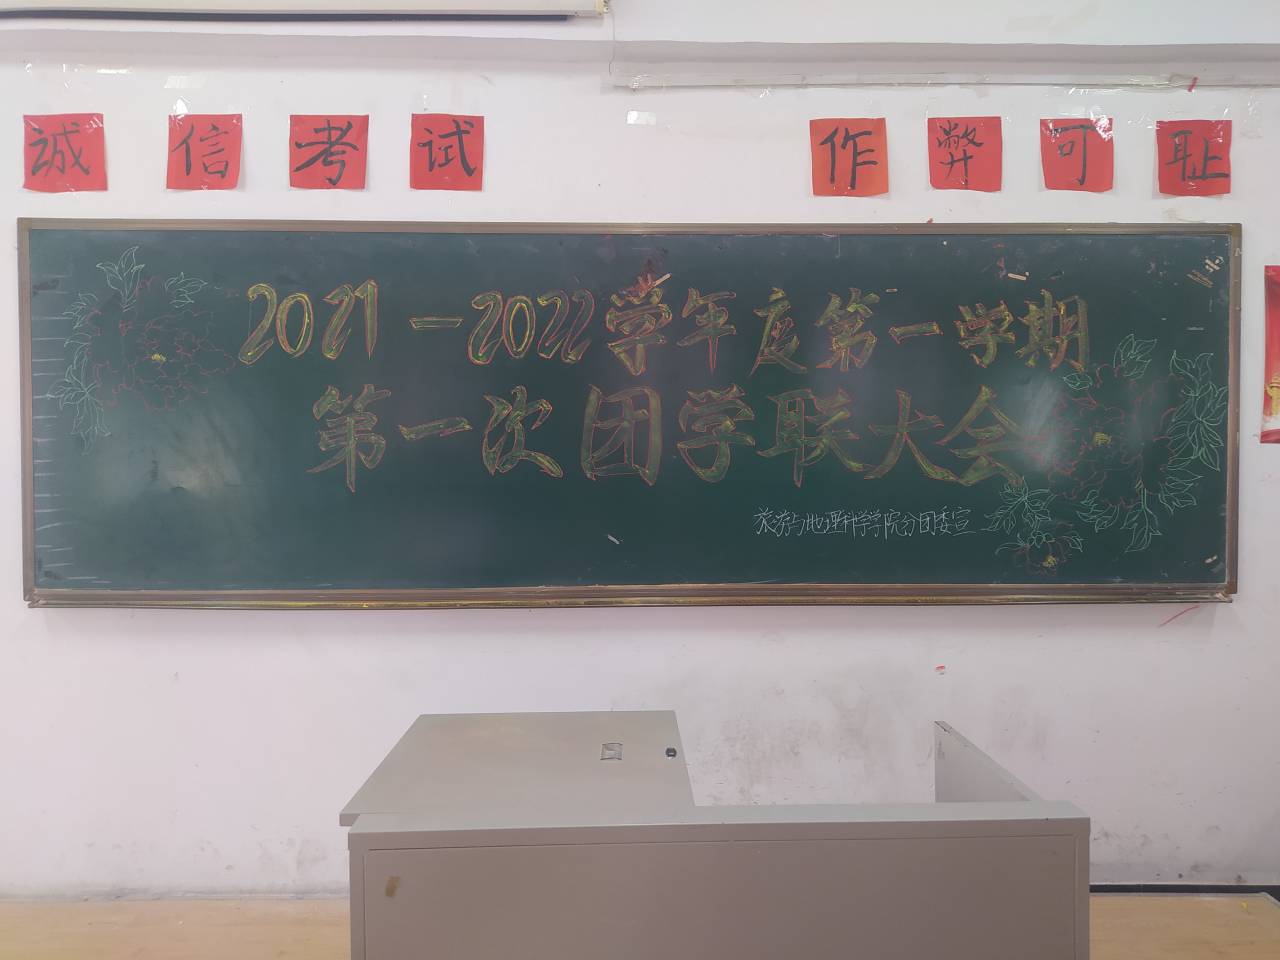 誠信考试 作弊可耻
2021-2022学年度第一学期
第一次团学联大会
旅游与地理科学学院分团委宣